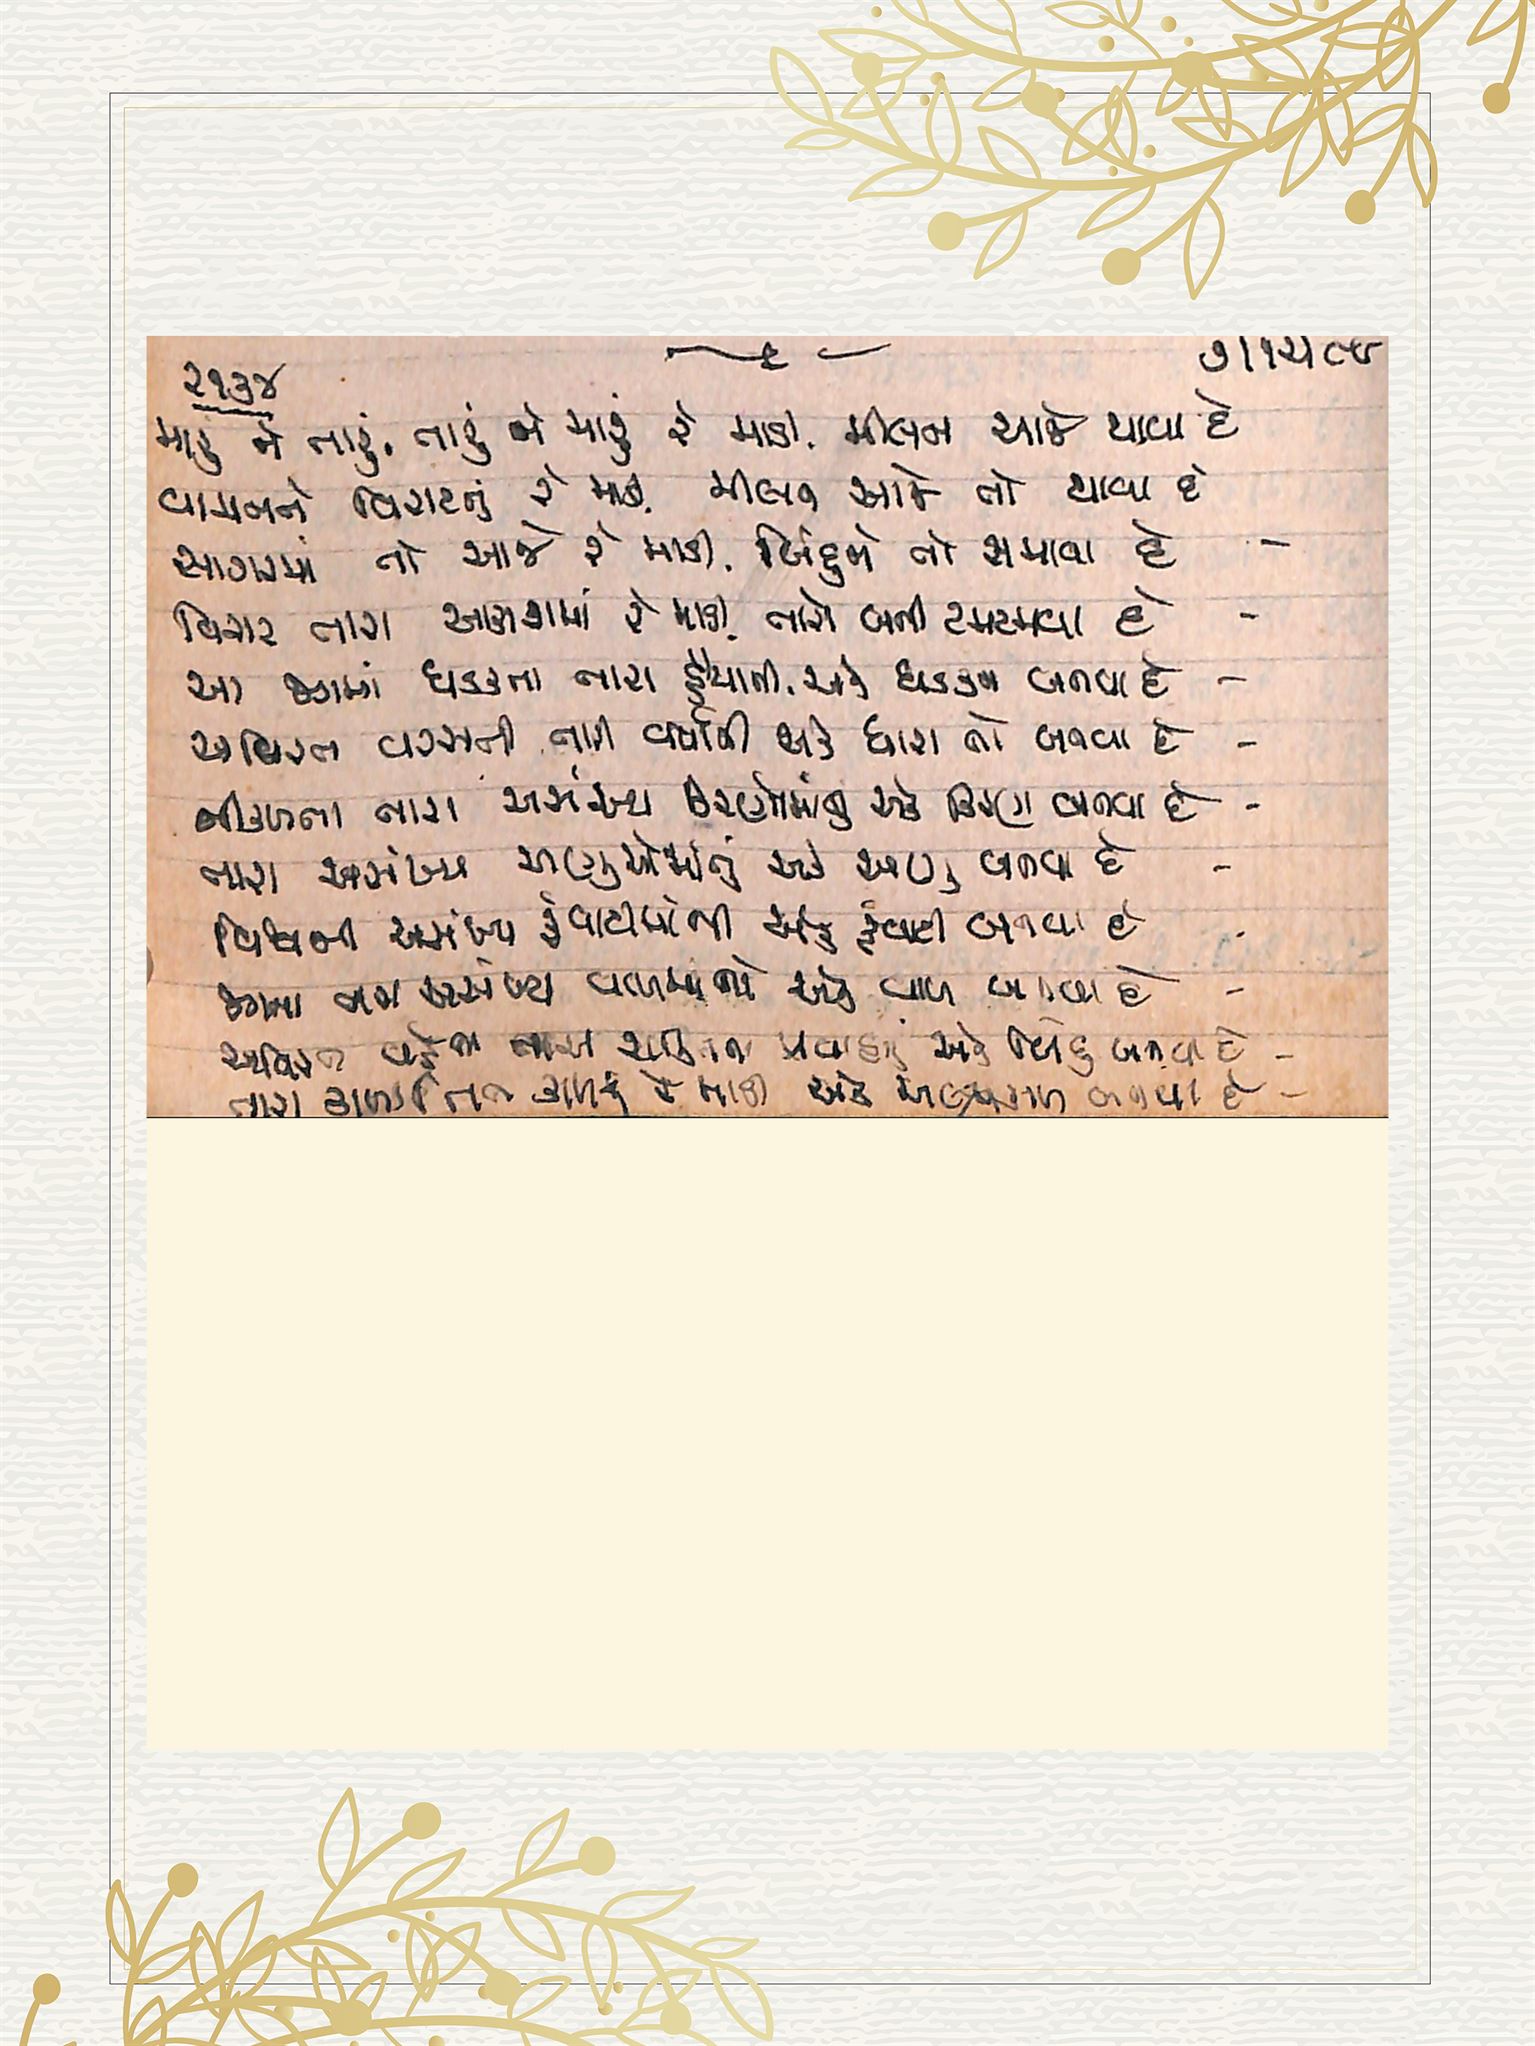 ૨૧૩૪
મારું ને તારું, તારું ને મારું રે માડી, મીલન આજે થાવા દે
વામનને વિરાટનું રે માડી, મીલન આજે તો થાવા દે
સાગરમાં તો આજે રે માડી, બિંદુને તો સમાવા દે -
વિરાટ તારા આકાશમાં રે માડી, તારો બની ટમટમવા દે -
આ જગમાં ધડકતા તારા હૈયાની, એક ધડકન બનવા દે -
અવિરત વરસતી તારી વર્ષાની એક ધારા તો બનવા દે -
નીકળતા તારા અસંખ્ય કિરણોમાંનું એક કિરણ બનવા દે -
તારા અસંખ્ય અણુઓમાંનું એક અણુ બનવા દે -
વિશ્વની અસંખ્ય રૂંવાટીમાંની એક રૂંવાટી બનવા દે -
જગના તારા અસંખ્ય વાળમાંનો એક વાળ બનવા દે -
અવિરત વહેતા તારા શક્તિના પ્રવાહનું એક બિંદુ બનવા દે -
તારા રે માડી એક બનવા દે -